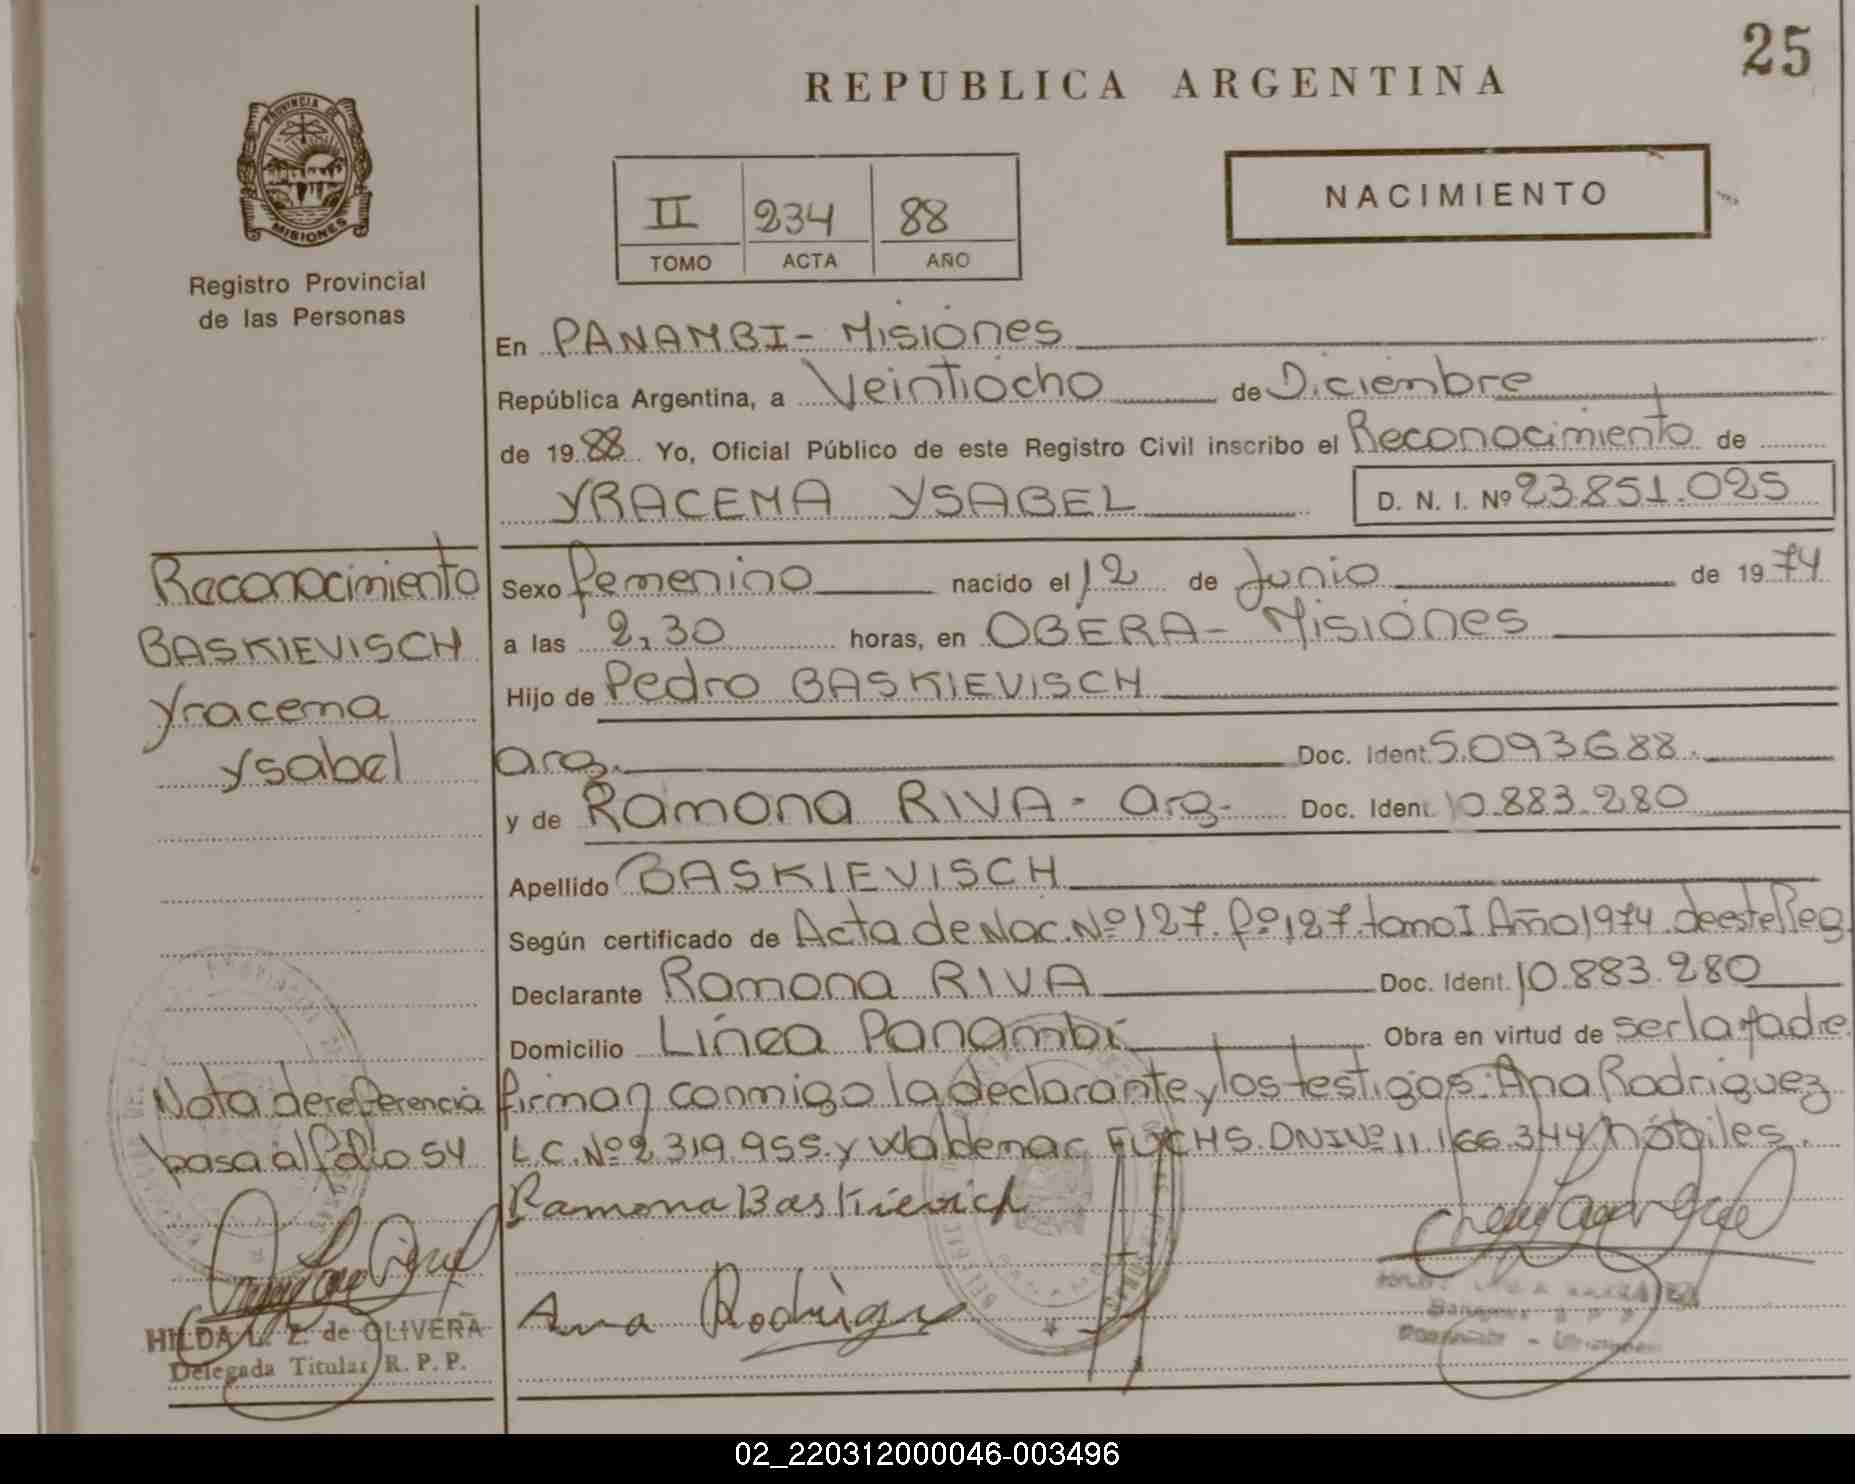 25
REPUBLICA ARGENTINA
PROVINCIA DE
MISIONES
Registro Provincial
de las Personas
II 234 88
TOMO ACTA AÑO
NACIMIENTO
En PANAMBI - Misiones
República Argentina, a Veintiocho de Diciembre
de 1988 Yo, Oficial Público de este Registro Civil inscribo el Reconocimiento de
YRACEMA YSABEL D. N. I. Nº 23.851.025
Reconocimiento
BASKIEVISCH
Yracema
Ysabel
Sexo femenino nacido el 12 de Junio de 1974
a las 2,30 horas, en OBERA - Misiones
Hijo de Pedro BASKIEVISCH
arg. Doc. Ident. 5.093.688.
y de Ramona RIVA - arg. Doc. Ident. 10.883.280
Apellido BASKIEVISCH
Según certificado de Acta de Nac. Nº 127. fº 127. tomo I Año 1974 de este Reg
Declarante Ramona RIVA Doc. Ident. 10.883.280
Domicilio Línea Panambí Obra en virtud de ser la madre
firman conmigo la declarante y los testigos: Ana Rodriguez
L.C. Nº 2.319.955. y Waldemar FUCHS. DNI Nº 11.166.344 hábiles.
Nota de referencia
pasa al folio 54
Ramona Baskievich
Ana Rodrigu
HILDA L. Z. de OLIVERA
Delegada Titular R. P. P.
02_220312000046-003496